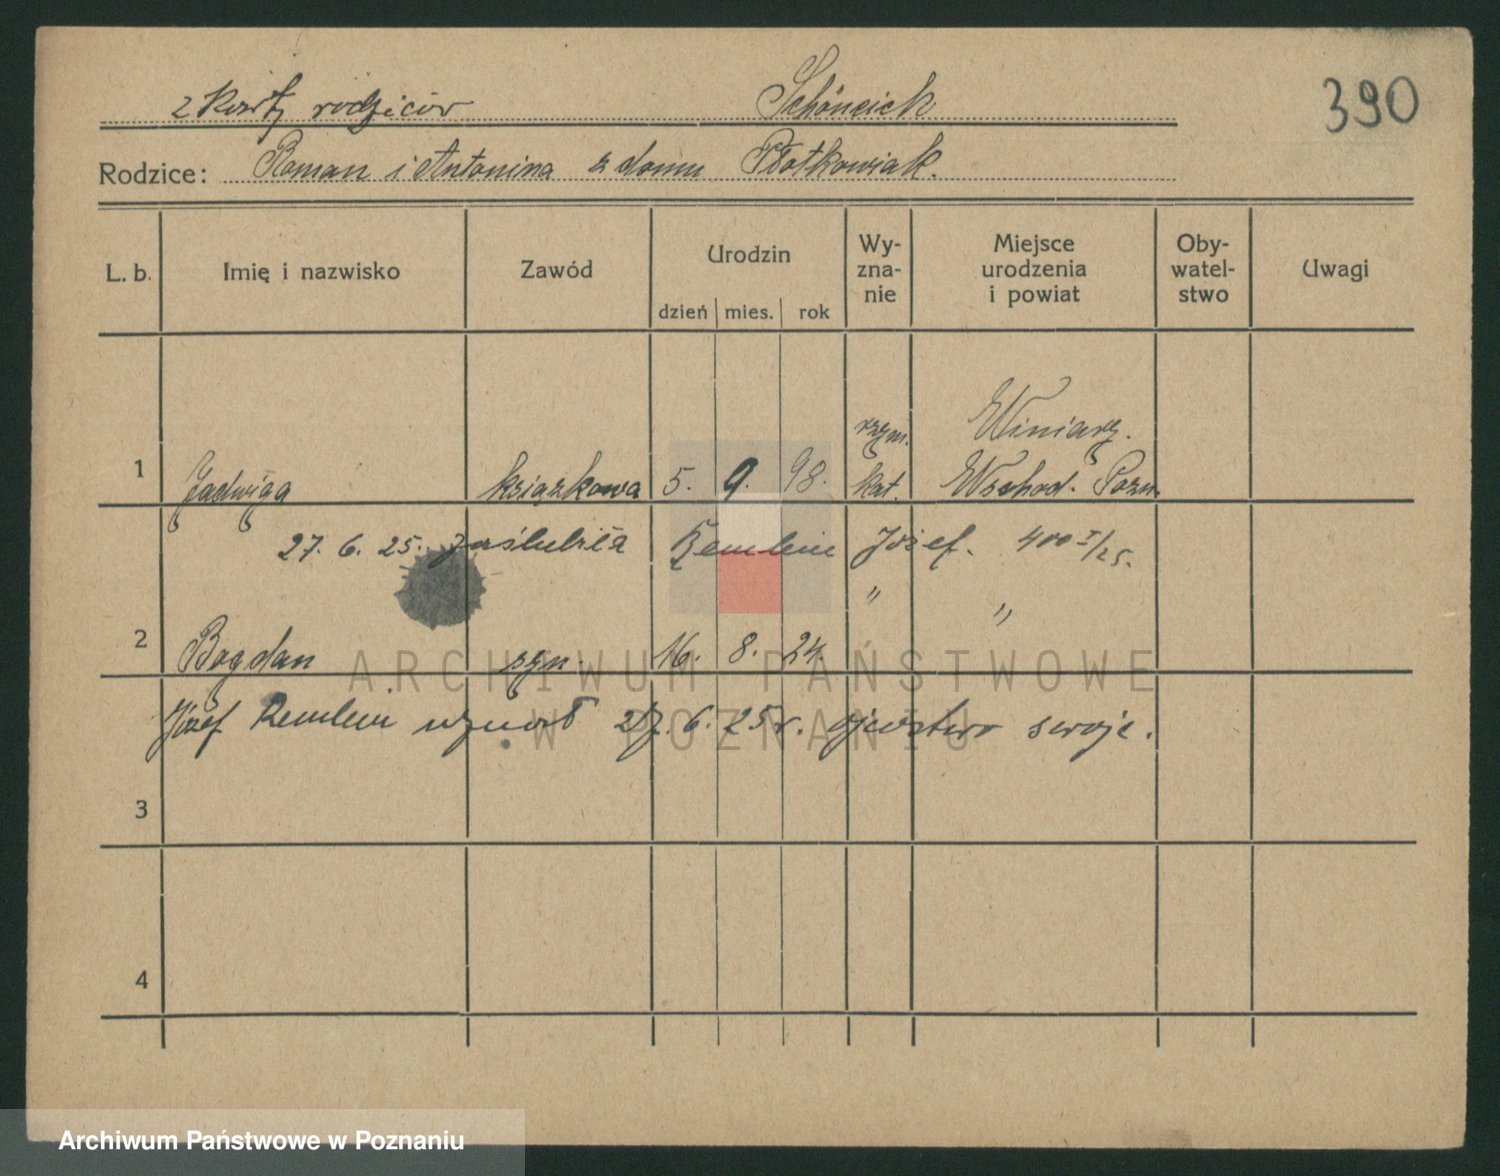 z karty rodziców Schöneick 390
Rodzice: Roman i Antonina z domu Płotkowiak.
L. b. Imię i nazwisko Zawód Urodzin dzień mies. rok Wy-zna-nie Miejsce urodzenia i powiat Oby-watel-stwo Uwagi
rzym. Winiary.
1 Jadwiga książkowa 5. 9. 98. kat. Wschod. Pozn.
27. 6. 25. zaślubiła Józef. 400 I/25.
" "
2 Bogdan syn. 16. 8. 24.
ARCHIWUM PAŃSTWOWE
Józef uznał 27. 6. 25 r. ojcostwo swoje.
W POZNANIU
3
4
Archiwum Państwowe w Poznaniu